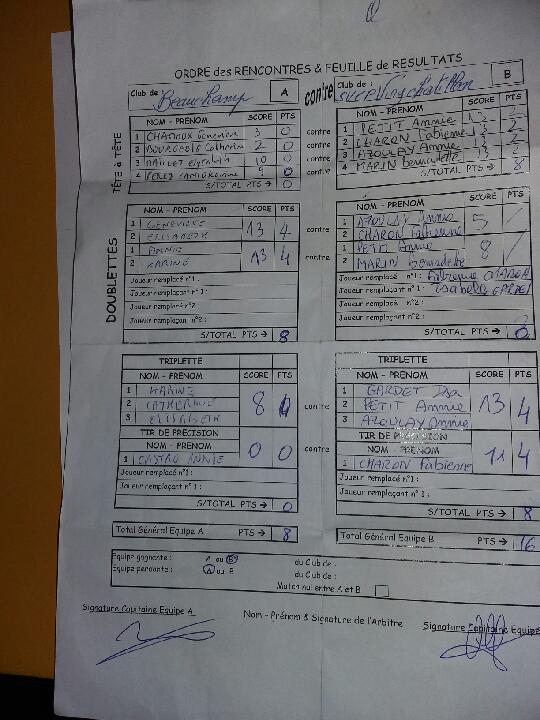 ORDRE des RENCONTRES & FEUILLE de RESULTATS
Club de : Beauchamp A contre Club de : B
TÊTE à TÊTE
NOM - PRENOM SCORE PTS
1 CHATAUX 3 0 contre
2 BOURGEOIS Catherine 2 0 contre
3 Elisabeth 10 0 contre
4 9 0 contre
S/TOTAL PTS → 0
NOM - PRENOM SCORE PTS
1 PETIT Annie 13 2
2 CHARON Fabienne 13 2
3 AZOULAY Annie 13 2
4 MARIN Bernadette 13 2
S/TOTAL PTS → 8
DOUBLETTES
NOM - PRENOM SCORE PTS
1 GENEVIEVE
2 ELISABETH 13 4 contre
1 ANNIE
2 KARINE 13 4 contre
Joueur remplacé n°1 :
Joueur remplaçant n°1 :
Joueur remplacé n°2 :
Joueur remplaçant n°2 :
S/TOTAL PTS → 8
NOM - PRENOM SCORE PTS
1 AZOULAY Annie
2 CHARON Fabienne 5 /
1 PETIT Annie
2 MARIN Bernadette 8 /
Joueur remplacé n°1 : Fabienne CHARON
Joueur remplaçant n°1 : Isabelle GARDET
Joueur remplacé n°2 :
Joueur remplaçant n°2 :
S/TOTAL PTS → 0
TRIPLETTE
NOM - PRENOM SCORE PTS
1 KARINE
2 CATHERINE 8 0 contre
3 ELISABETH
TIR DE PRECISION
NOM - PRENOM 0 0 contre
1 CASTRO ANNIE
Joueur remplacé n°1 :
Joueur remplaçant n°1 :
S/TOTAL PTS → 0
TRIPLETTE
NOM - PRENOM SCORE PTS
1 GARDET Isa
2 PETIT Annie 13 4
3 AZOULAY Annie
TIR DE PRECISION
NOM - PRENOM 11 4
1 CHARON Fabienne
Joueur remplacé n°1 :
Joueur remplaçant n°1 :
S/TOTAL PTS → 8
Total Général Equipe A PTS → 8
Total Général Equipe B PTS → 16
Equipe gagnante : A ou B du Club de :
Equipe perdante : A ou B du Club de :
Match nul entre A et B
Signature Capitaine Equipe A
Nom - Prénom & Signature de l'Arbitre
Signature Capitaine Equipe